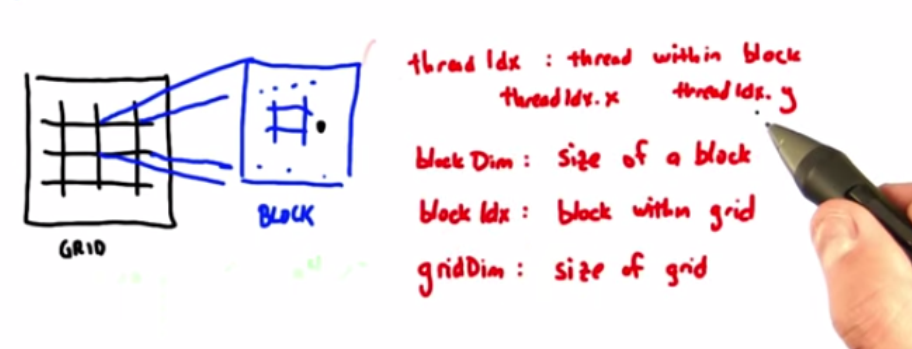 GRID
BLOCK
threadIdx : thread within block
threadIdx.x threadIdx.y
blockDim : size of a block
blockIdx : block within grid
gridDim : size of grid